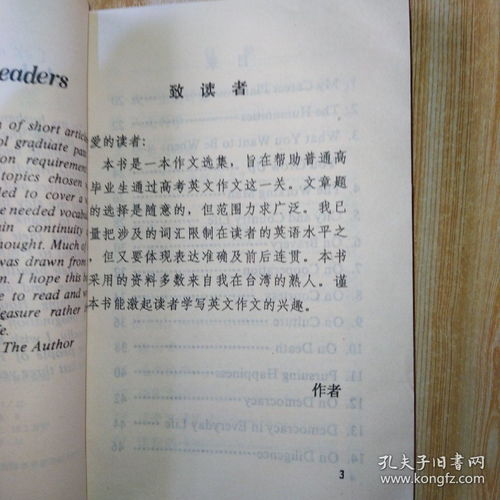 eaders
n of short artic
ol graduate pa
on requirement
topics chosen
ded to cover a
e needed vocabu
ain continuity
hought. Much of
was drawn from
n. I hope this b
e to read and w
easure rather
fe.
The Author
致读者
爱的读者:
本书是一本作文选集，旨在帮助普通高
毕业生通过高考英文作文这一关。文章题
的选择是随意的，但范围力求广泛。我已
量把涉及的词汇限制在读者的英语水平之
，但又要体现表达准确及前后连贯。本书
采用的资料多数来自我在台湾的熟人。谨
本书能激起读者学写英文作文的兴趣。
作者
3
孔夫子旧书网
kongfz.com